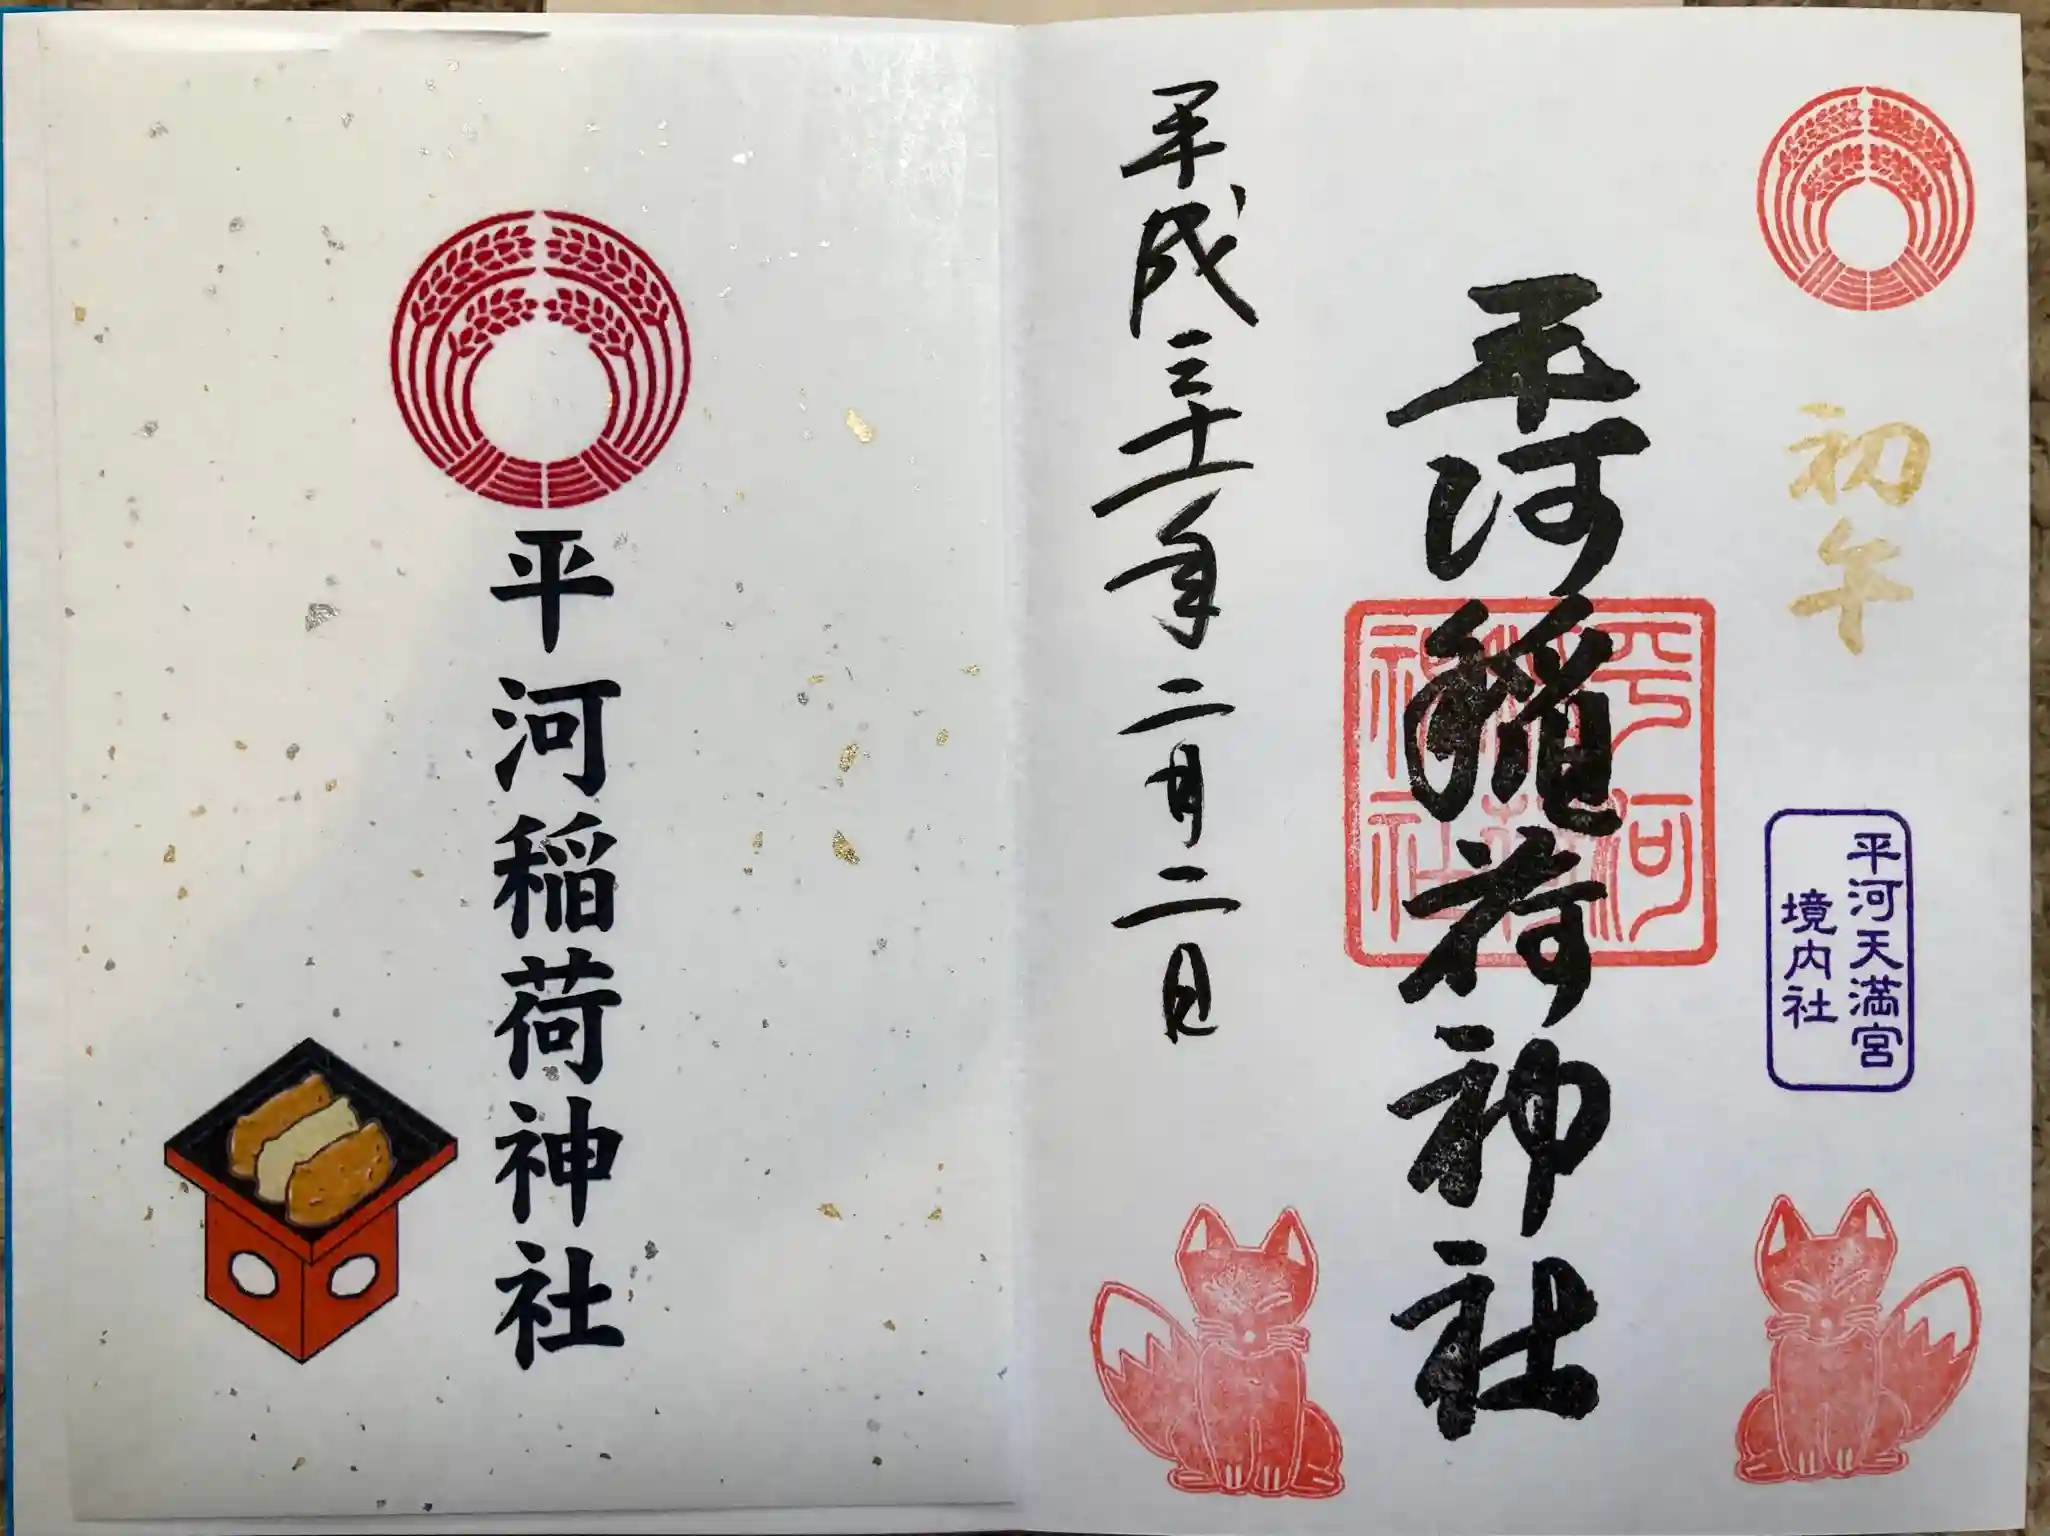 初午
平河天満宮
境内社
平河稲荷神社
平河
稲荷
神社
平成三十一年二月二日
平河稲荷神社